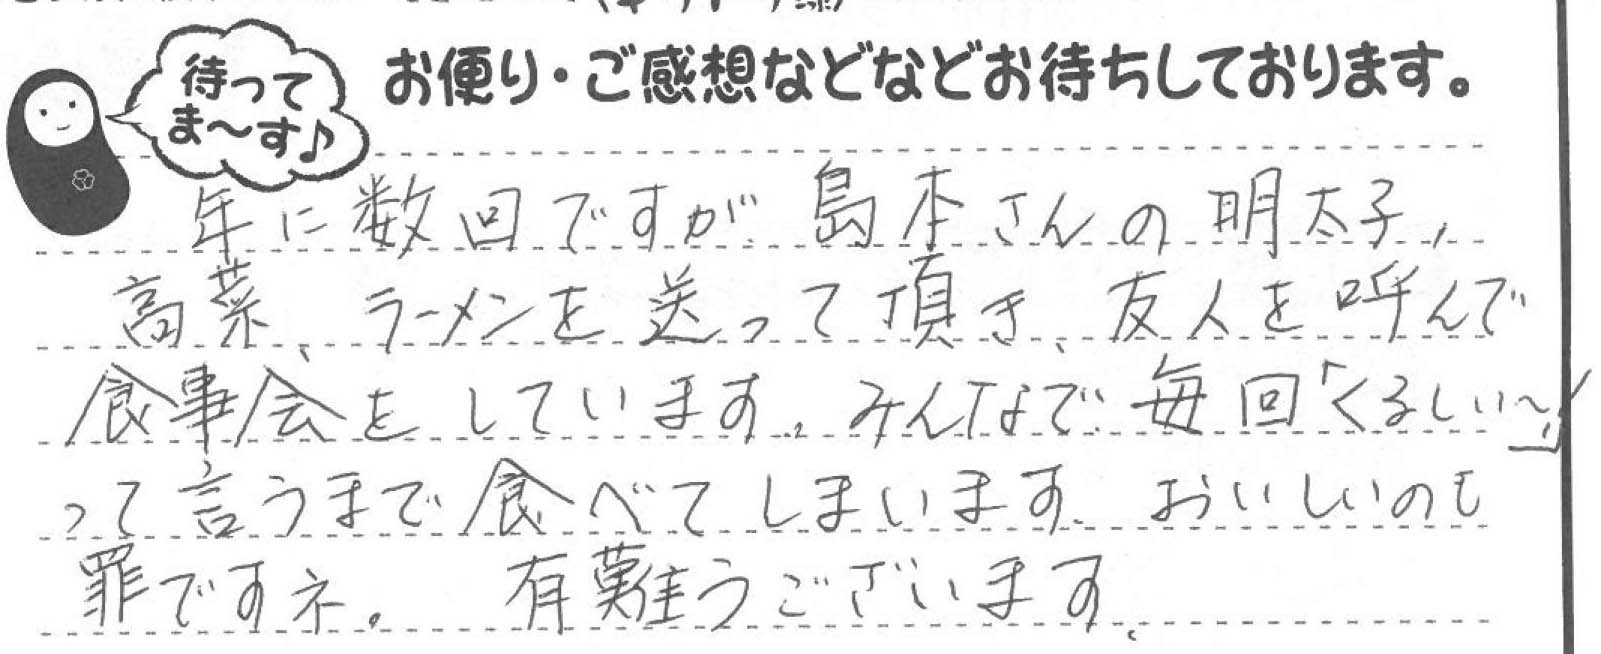 待って
ま〜す♪
お便り・ご感想などなどお待ちしております。
年に数回ですが、島本さんの明太子、
高菜、ラーメンを送って頂き、友人を呼んで
食事会をしています。みんなで毎回「くるしい〜」
って言うまで食べてしまいます。おいしいのも
罪ですネ。 有難うございます。